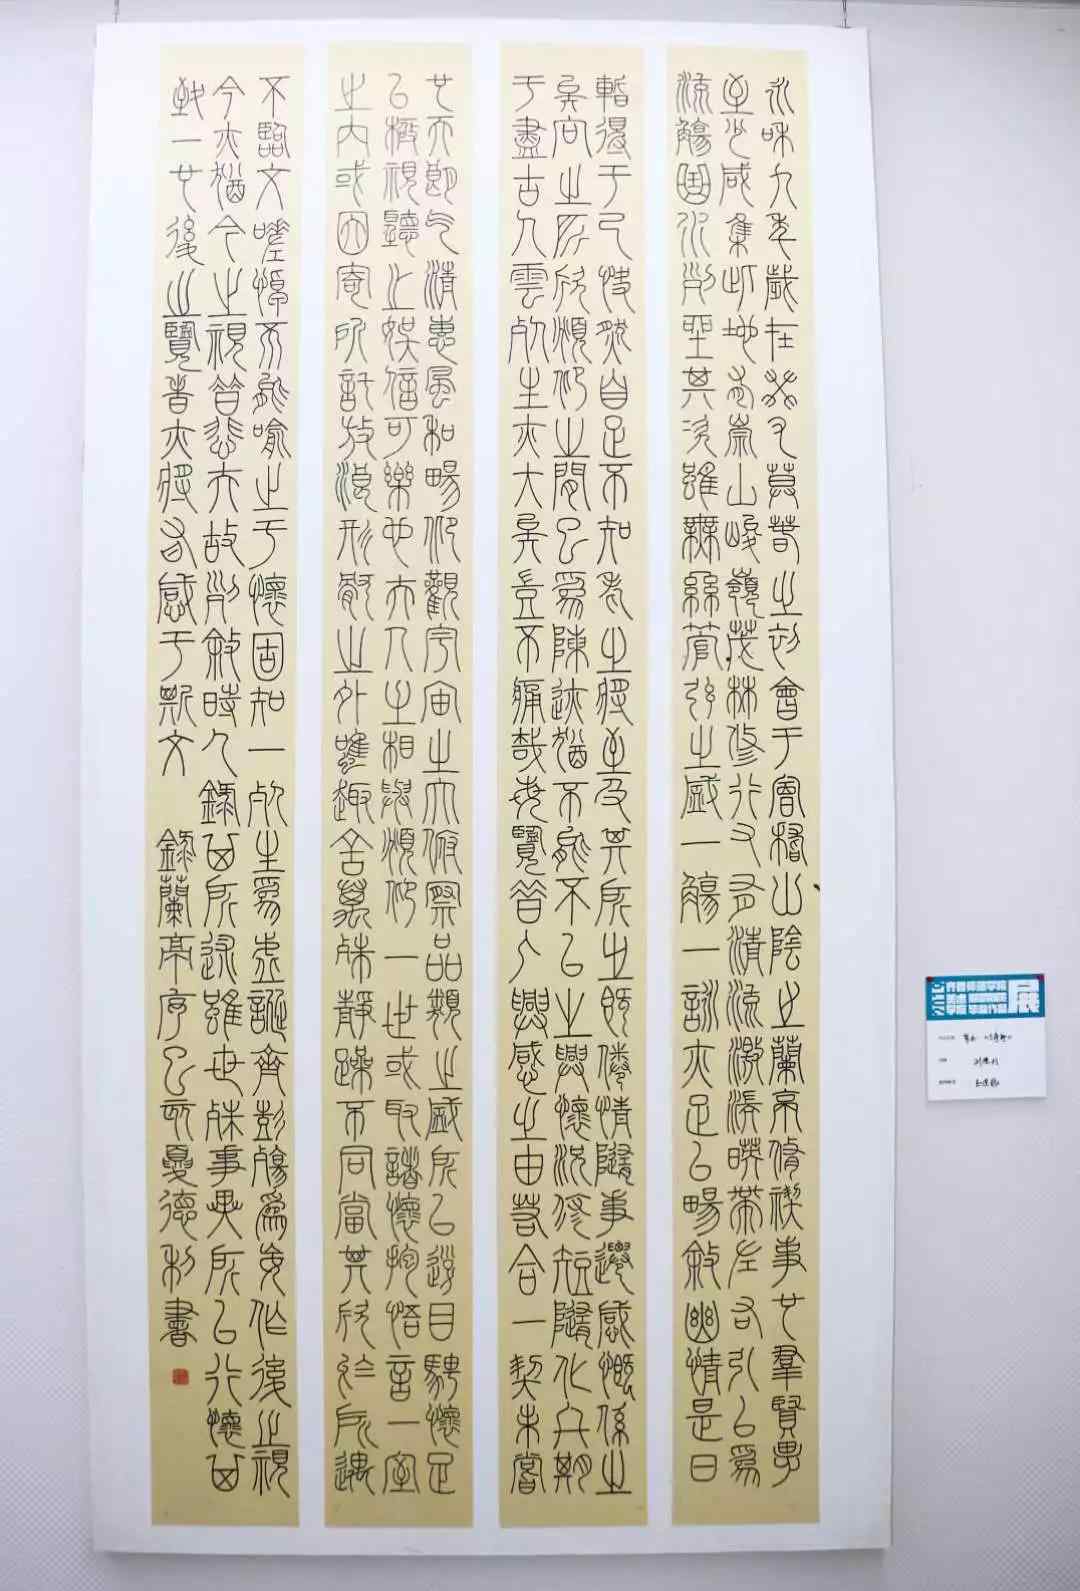 永和九年歲在癸丑莫春之初會于會稽山陰之蘭亭脩禊事也羣賢畢
至少咸集此地有崇山峻嶺茂林修竹又有清流激湍暎帶左右引以爲
流觴曲水列坐其次雖無絲管弦之盛一觴一詠亦足以暢敘幽情是日
暫得于己快然自足不知老之將至及其所之既倦情隨事遷感慨係之
矣向之所欣頫仰之閒以爲陳迹猶不能不以之興懷況修短隨化終期
于盡古人雲死生亦大矣豈不痛哉每覽昔人興感之由若合一契未嘗
也天朗气清惠風和暢仰觀宇宙之大俯察品類之盛所以遊目騁懷足
以極視聽之娛信可樂也夫人之相與頫仰一世或取諸懷抱悟言一室
之內或因寄所託放浪形骸之外雖趣舍萬殊靜躁不同當其欣於所遇
不臨文嗟悼不能喻之于懷固知一死生爲虛誕齊彭殤爲妄作後之視
今亦猶今之視昔悲夫故列敘時人錄其所述雖世殊事異所以懷其
致一也後之覽者亦將有感于斯文 錄蘭亭序己亥夏德利書
2019
展